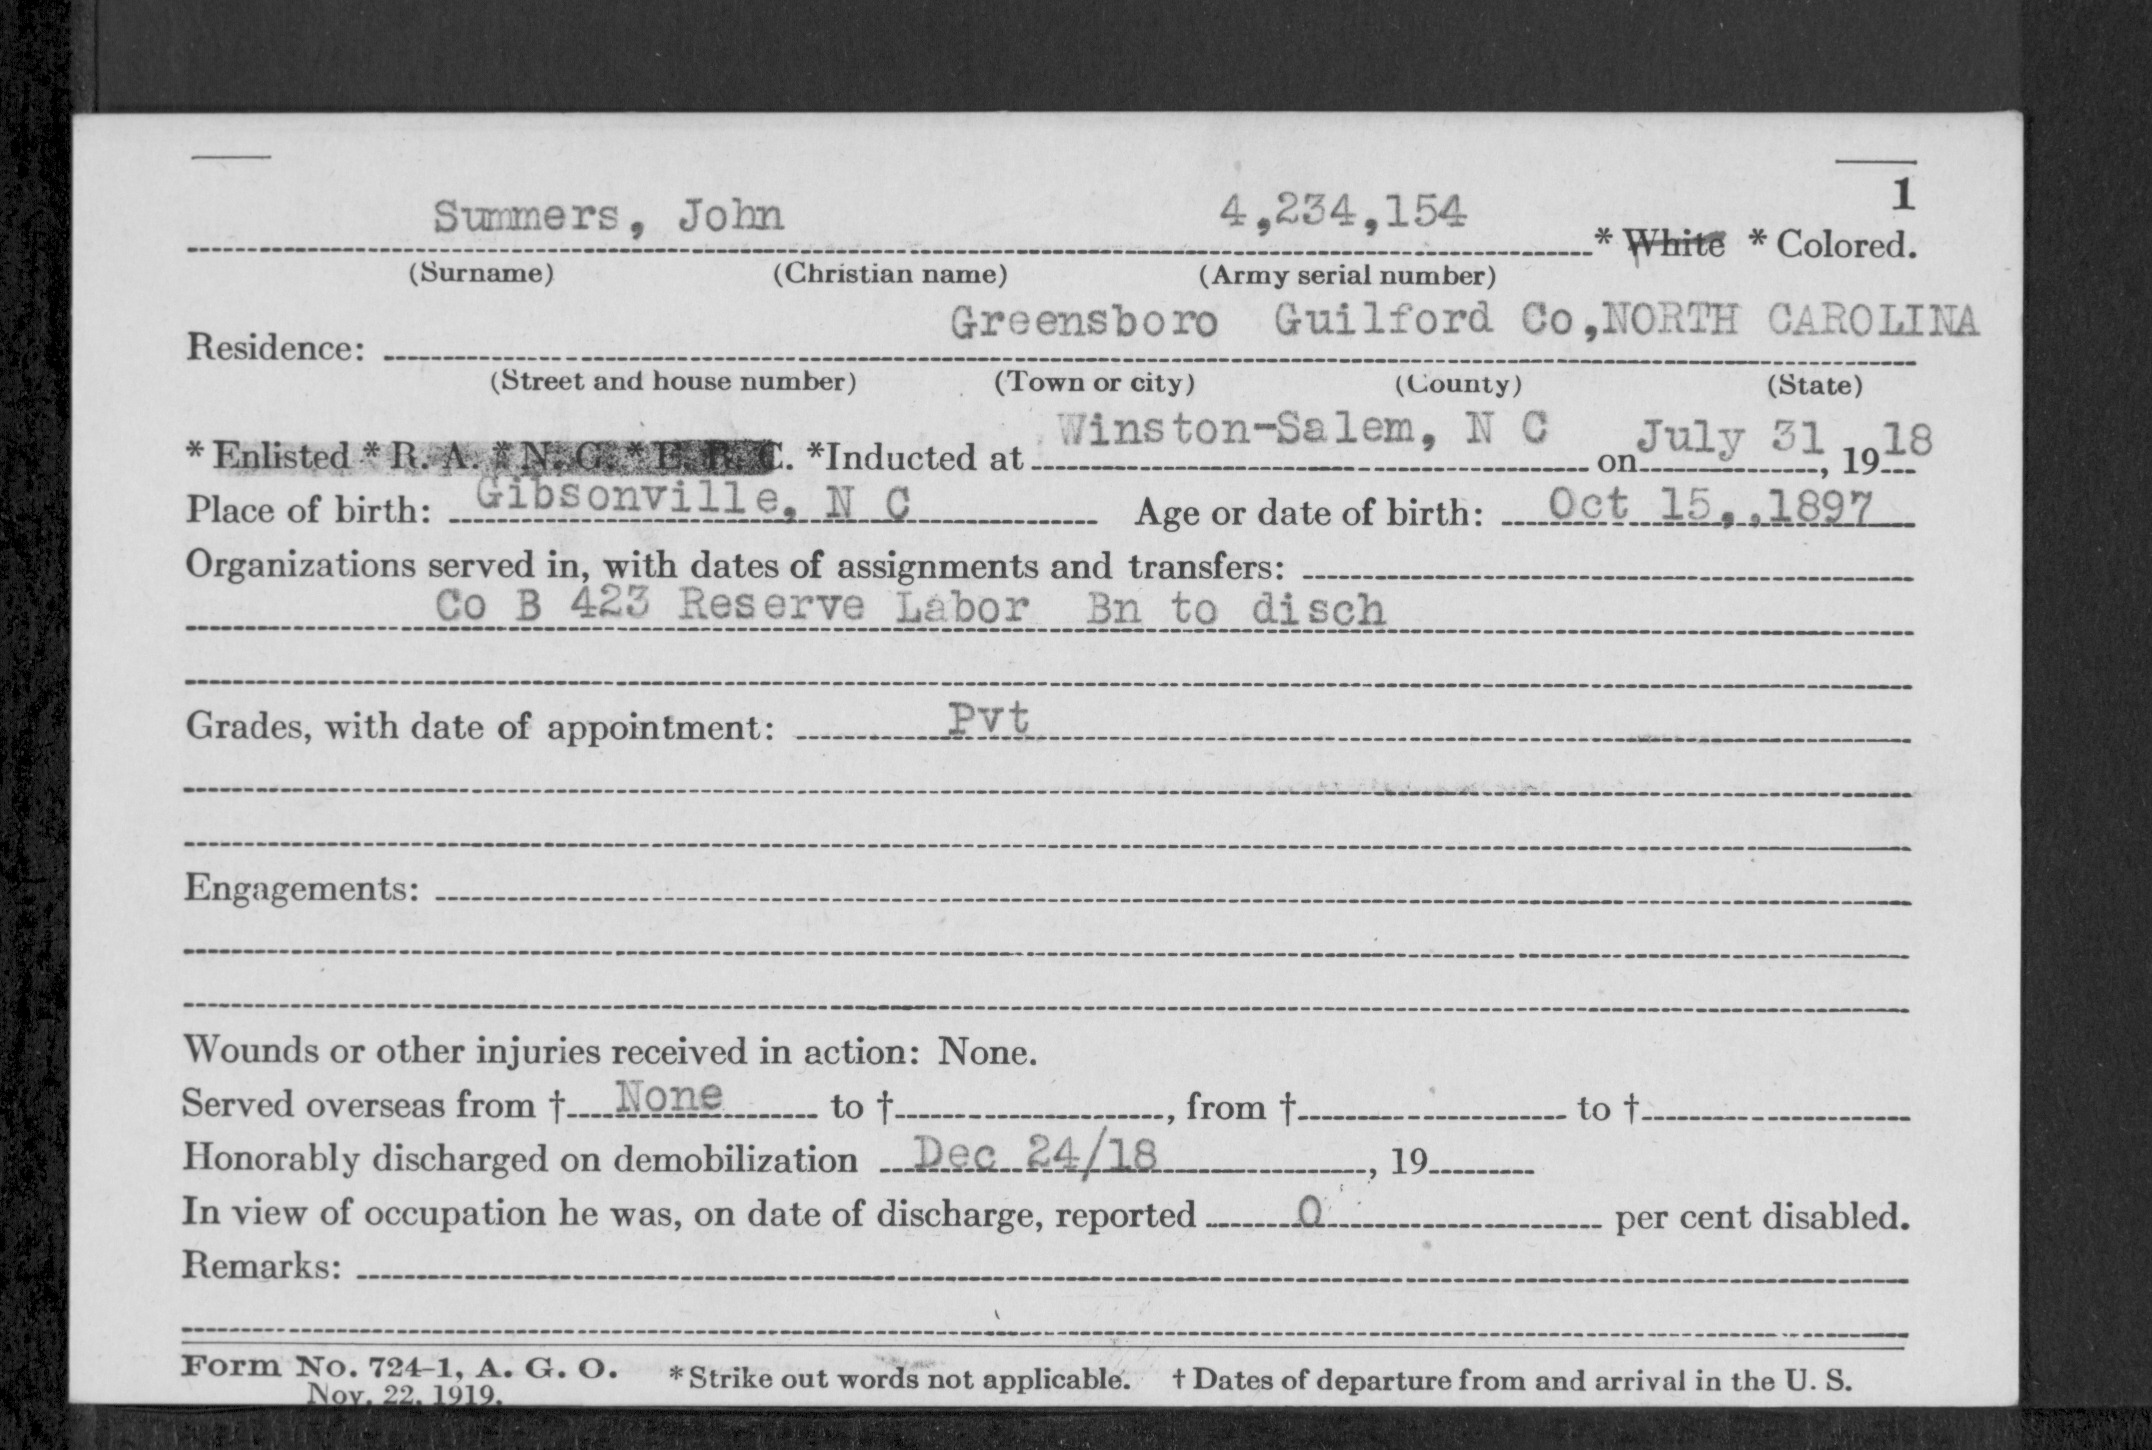 1
Summers, John 4,234,154 * White * Colored.
(Surname) (Christian name) (Army serial number)
Residence: Greensboro Guilford Co, NORTH CAROLINA
(Street and house number) (Town or city) (County) (State)
* Enlisted * R. A. * N. G. * E. R. C. *Inducted at Winston-Salem, N C on July 31, 1918
Place of birth: Gibsonville, N C Age or date of birth: Oct 15,,1897
Organizations served in, with dates of assignments and transfers:
Co B 423 Reserve Labor Bn to disch
Grades, with date of appointment: Pvt
Engagements:
Wounds or other injuries received in action: None.
Served overseas from † None to †, from † to †
Honorably discharged on demobilization Dec 24/18, 19
In view of occupation he was, on date of discharge, reported 0 per cent disabled.
Remarks:
Form No. 724-1, A. G. O. * Strike out words not applicable. † Dates of departure from and arrival in the U. S.
Nov. 22, 1919.